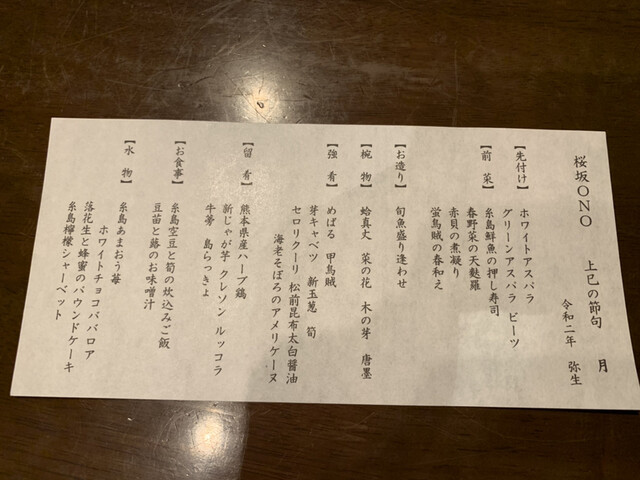 桜坂ONO
月
上巳の節句
令和二年 弥生
【先付け】 ホワイトアスパラ
グリーンアスパラ ビーツ
【前菜】 糸島鮮魚の押し寿司
春野菜の天麩羅
赤貝の煮凝り
蛍烏賊の春和え
【お造り】 旬魚盛り逢わせ
【椀物】 蛤真丈 菜の花 木の芽 唐墨
【強肴】 めばる 甲烏賊
芽キャベツ 新玉葱 筍
セロリクーリ 松前昆布太白醤油
海老そぼろのアメリケーヌ
【留肴】 熊本県産ハーブ鶏
新じゃが芋 クレソン ルッコラ
牛蒡 島らっきょ
【お食事】 糸島空豆と筍の炊込みご飯
豆苗と蕗のお味噌汁
【水物】 糸島あまおう苺
ホワイトチョコババロア
落花生と蜂蜜のパウンドケーキ
糸島檸檬シャーベット